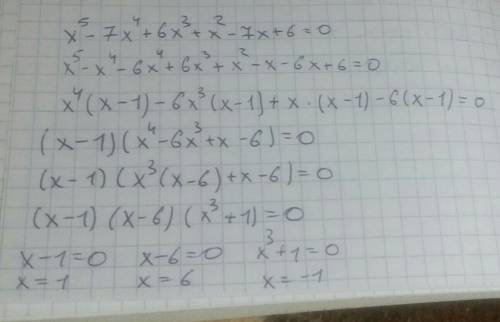 x⁵ - 7x⁴ + 6x³ + x² - 7x + 6 = 0
x⁵ - x⁴ - 6x⁴ + 6x³ + x² - x - 6x + 6 = 0
x⁴(x - 1) - 6x³(x - 1) + x · (x - 1) - 6(x - 1) = 0
(x - 1)(x⁴ - 6x³ + x - 6) = 0
(x - 1)(x³(x - 6) + x - 6) = 0
(x - 1)(x - 6)(x³ + 1) = 0
x - 1 = 0 x - 6 = 0 x³ + 1 = 0
x = 1 x = 6 x = -1